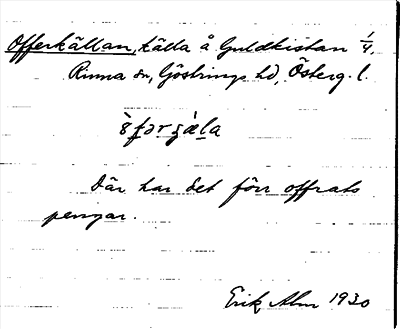 Offerkällan, källa å Guldkistan 1/4.
Rinna sn, Göstrings hd, Österg. l.
Där har det förr offrats
pengar.
Erik Alm 1930